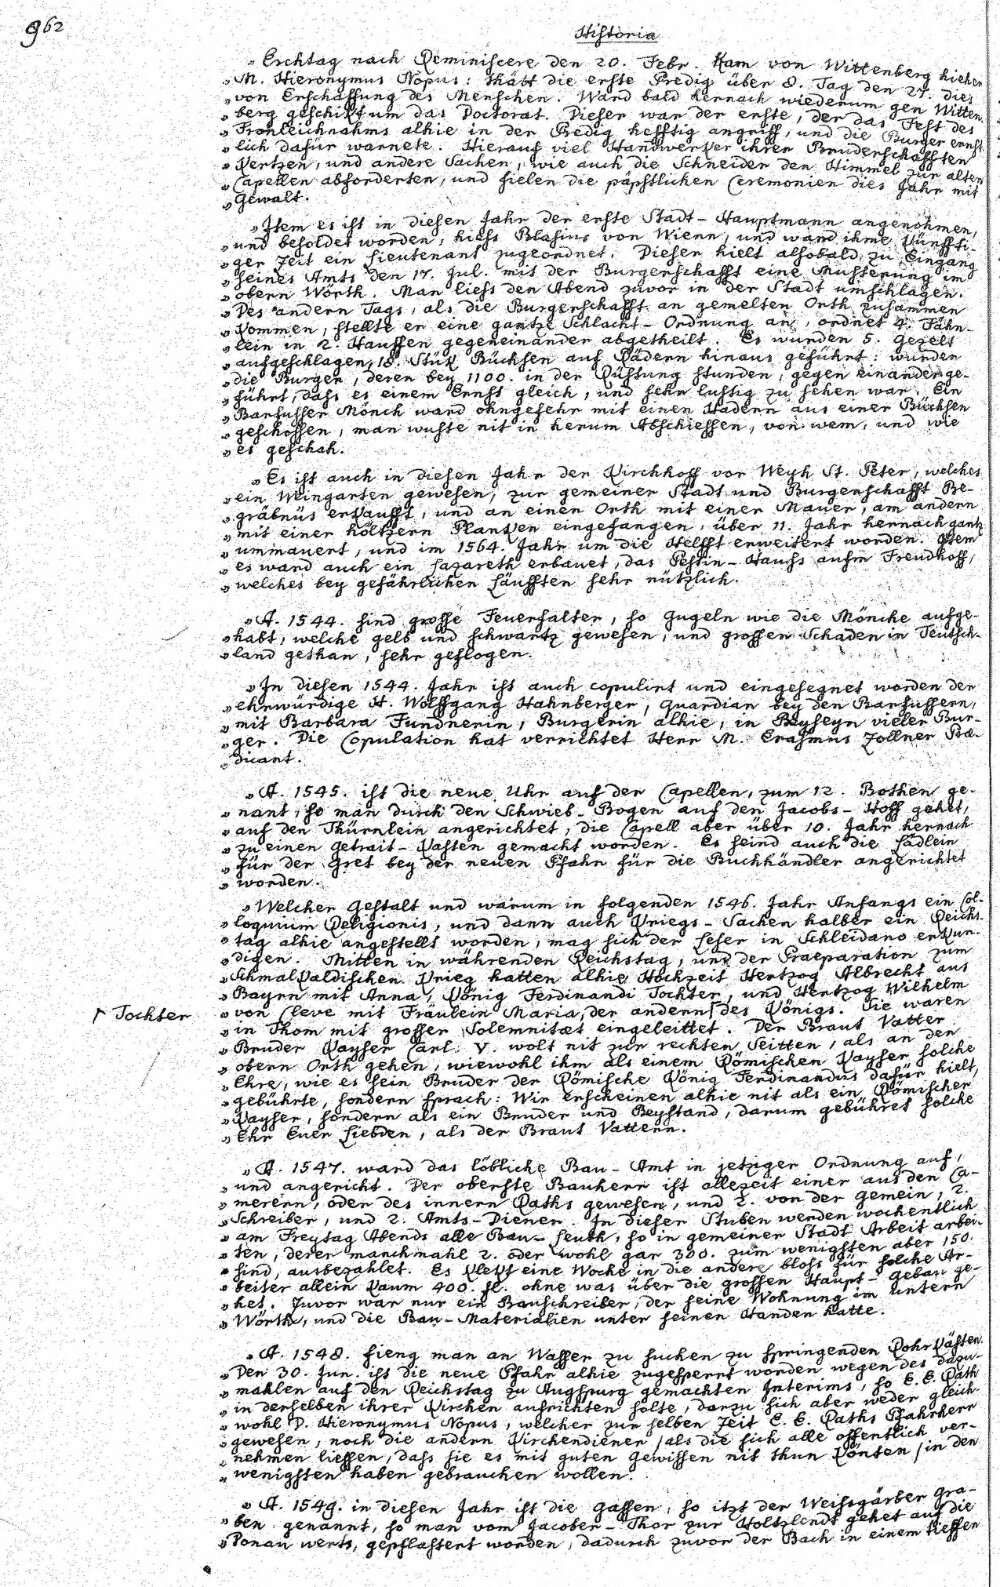 962
Historia
„Erchtag nach Reminiscere den 20. Febr. Kam von Wittenberg hieher
„M. Hieronymus Nopus: thätt die erste Predig über 8. Tag den 27. dies
„von Erschaffung des Menschen. Ward bald hernach wiederum gen Witten-
„berg geschikt um das Doctorat. Dieser war der erste, der das Fest des
„Fronleichnahms alhie in der Predig hefftig angriff, und die Burger ernst-
„lich dafür warnete. Hierauf viel Handwerker ihrer Bruderschafften
„Kertzen, und andere Sachen, wie auch die Schneider den Himmel zur alten
„Capellen abforderten, und fielen die päpstlichen Ceremonien dies Jahr mit
„Gewalt.
„Item es ist in diesen Jahr der erste Stadt-Hauptmann angenohmen,
„und besoldet worden, hiess Blasius von Wienn, und ward ihme künffti-
„ger Zeit ein Lieutenant zugeordnet. Dieser hielt alsobald zu Eingang
„seines Amts den 17. Jul. mit der Burgerschafft eine Musterung im
„obern Wörth. Man liess den Abend zuvor in der Stadt umschlagen.
„Des andern Tags, als die Burgerschafft an gemelten Orth zusammen
„kommen, stellte er eine gantze Schlacht-Ordnung an, ordnet 4. Fähn-
„lein in 2. Hauffen gegeneinander abgetheilt. Es wurden 5. Gezelt
„aufgeschlagen, 18. Stük Büchsen auf Rädern hinaus geführt: wurden
„die Burger, deren bey 1100. in der Rüstung stunden, gegen einander ge-
„führt, dass es einem Ernst gleich, und sehr lustig zu sehen war. Ein
„Barfusser Mönch ward ohngefehr mit einen Hadern aus einer Büchsen
„geschossen, man wuste nit in herum Abschiessen, von wem, und wie
„es geschah.
„Es ist auch in diesen Jahr der Kirchhoff vor Weyh St. Peter, welches
„ein Weingarten gewesen, zur gemeiner Stadt und Burgerschafft Be-
„gräbnüs erkaufft, und an einen Orth mit einer Mauer, am andern
„mit einer höltzern Planken eingefangen, über 11. Jahr hernach gantz
„ummauert, und im 1564. Jahr um die Helfft erweitert worden. Item
„es ward auch ein Lazareth erbauet, das Pestin-Hauss aufm Freudhoff,
„welches bey gefährlichen Läufften sehr nützlich.
„A. 1544. sind grosse Feuerfalter, so Gugeln wie die Mönche aufge-
„habt, welche gelb und schwartz gewesen, und grossen Schaden in Teutsch-
„land gethan, sehr geflogen.
„In diesen 1544. Jahr ist auch copulirt und eingesegnet worden der
„ehrwürdige H. Wolffgang Hahnberger, Guardian bey den Barfussern,
„mit Barbara Fundnerin, Burgerin alhie, in Beyseyn vieler Bur-
„ger. Die Copulation hat verrichtet Herr M. Erasmus Zollner Præ-
„dicant.
„A. 1545. ist die neue Uhr auf der Capellen, zum 12. Bothen ge-
„nant, so man durch den Schwieb-Bogen auf den Jacobs-Hoff gehet,
„auf den Thürnlein angerichtet, die Capell aber über 10. Jahr hernach
„zu einen Getrait-Kasten gemacht worden. Es seind auch die Lädlein
„für der Gret bey der neuen Pfarr für die Buchhändler angerichtet
„worden.
„Welcher Gestalt und warum in folgenden 1546. Jahr Anfangs ein Col-
„loquium Religionis, und dann auch Kriegs-Sachen halber ein Reichs-
„tag alhie angestellt worden, mag sich der Leser in Schleidano erkun-
„digen. Mitten in währenden Reichstag, und der Praeparation zum
„Schmalkaldischen Krieg hatten alhie Hochzeit Hertzog Albrecht aus
„Bayrn mit Anna, König Ferdinandi Tochter, und Hertzog Wilhelm
„von Cleve mit Fräulein Maria, der andern ⌈ des Königs. Sie waren
⌈ Tochter
„in Thom mit grosser Solemnitæt eingeleittet. Der Braut Vatter
„Bruder Kayser Carl. V. wolt nit zur rechten Seitten, als an den
„obern Orth gehen, wiewohl ihm als einem Römischen Kayser solche
„Ehre, wie es sein Bruder der Römische König Ferdinandus dafür hielt,
„gebührte, sondern sprach: Wir erscheinen alhie nit als ein Römischer
„Kayser, sondern als ein Bruder und Beystand, darum gebühret solche
„Ehr Euer Liebden, als der Braut Vattern.
„A. 1547. ward das löbliche Bau-Amt in jetziger Ordnung auf,
„und angericht. Der oberste Bauherr ist allezeit einer aus den Ca-
„merern, oder des innern Raths gewesen, und 2. von der Gemein, 2.
„Schreiber, und 2. Amts-Diener. In dieser Stuben werden wochentlich
„am Freytag Abends alle Bau-Leuth, so in gemeiner Stadt Arbeit arbei-
„ten, derer manchmahl 2. oder wohl gar 300. zum wenigsten aber 150.
„sind, ausbezahlet. Es klekt eine Woche in die andere bloss für solche Ar-
„beiter allein kaum 400. fl. ohne was über die grossen Haupt-Gebäu ge-
„het. Zuvor war nur ein Bauschreiber, der seine Wohnung im untern
„Wörth, und die Bau-Materialien unter seinen Handen hatte.
„A. 1548. fieng man an Wasser zu suchen zu springenden Rohrkästen.
„Den 30. Jun. ist die neue Pfarr alhie zugesperrt worden wegen des dazu-
„mahlen auf den Reichstag zu Augspurg gemachten Interims, so E. E. Rath
„in derselben ihrer Kirchen aufrichten solte, darzu sich aber weder gleich-
„wohl D. Hieronymus Nopus, welcher zur selben Zeit E. E. Raths Pfarrherr
„gewesen, noch die andern Kirchendiener / als die sich alle offentlich ver-
„nehmen liessen, dass sie es mit guten Gewissen nit thun könten / in den
„wenigsten haben gebrauchen wollen.
„A. 1549. in diesen Jahr ist die Gassen, so itzt der Weissgärber Gra-
„ben genannt, so man vom Jacober-Thor zur Holtzlendt gehet auf die
„Donau werts, gepflastert worden, dadurch zuvor der Bach in einem tieffen